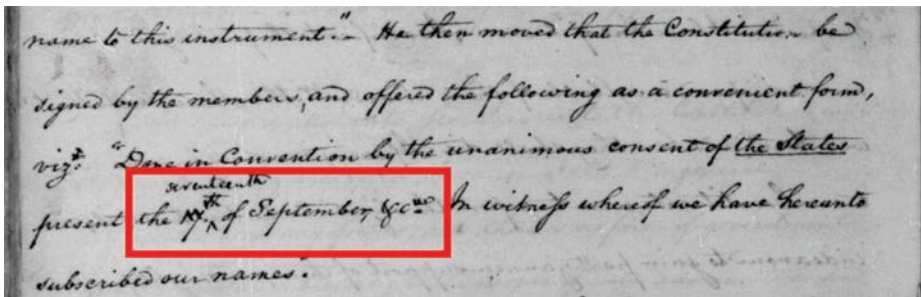 name to this instrument." He then moved that the Constitution be
signed by the members, and offered the following as a convenient form,
viz.t "Done in Convention by the unanimous consent of the States
seventeenth
present the 17.th of September, &c In witness whereof we have hereunto
subscribed our names".